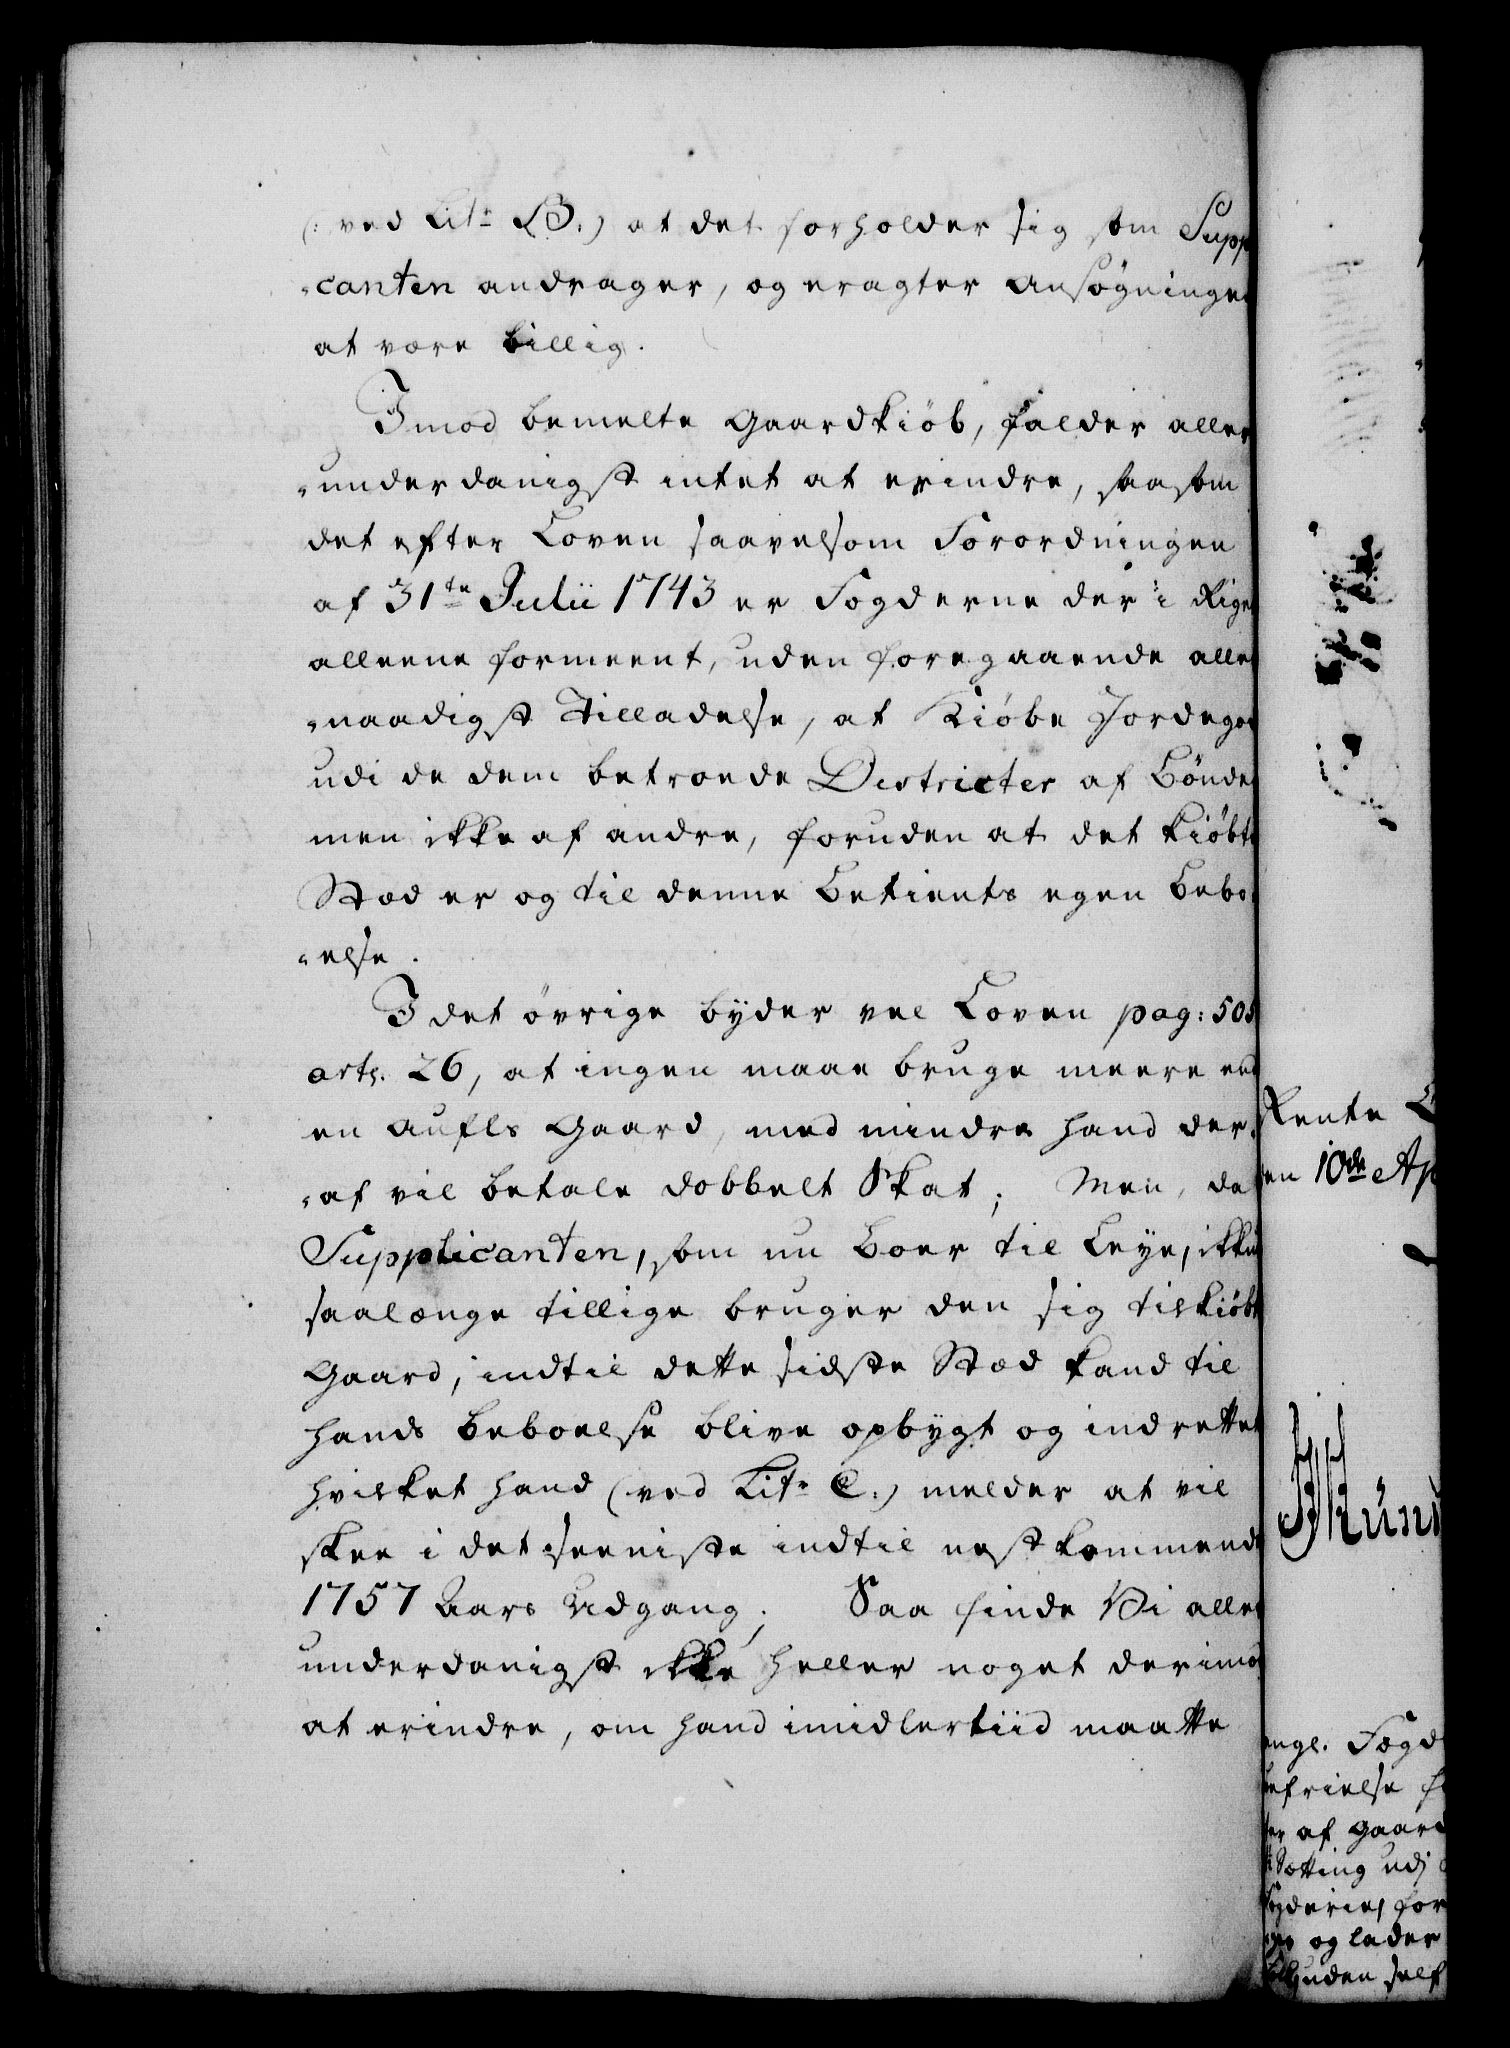 (: ved Litr B.) at det forholder sig som Supp
-canten andrager, og eragter Ansøgningen
at være billig.
Imod bemelte Gaardkiøb, falder aller
-underdanigst intet at erindre, saasom
det efter Loven saavelsom Forordningen
af 31te Julii 1743 er Fogderne der i Riget
alleene formeent, uden foregaaende aller
-naadigst Tilladelse, at Kiøbe Jordegods
udi de dem betroede Districter af Bønder
men ikke af andre, foruden at det kiøbte
Stæd er og til denne Betients egen Beboe
-else.
I det øvrige byder vel Loven pag: 505
artl. 26, at ingen maae bruge meere end
en Aufls Gaard, med mindre hand der-
-af vil betale dobbelt Skat; Men, da
Supplicanten, som nu Boer til Leye, ikke
saalænge tillige bruger den sig tilkiøbte
Gaard, indtil dette sidste Stæd kand til
hands beboelse blive opbygt og indrettet
hvilket hand (ved Litr C.) melder at vil
skee i det seeniste indtil nestkommende
1757 Aars Udgang; Saa finde Vi aller
underdanigst ikke heller noget derimod
at erindre, om hand imidlertiid maatte
Rente
en 10de Ap
engl. Fogd
befrielse f
er af Gaard
Sætting udj
Fogderie, for
og lader
uden self